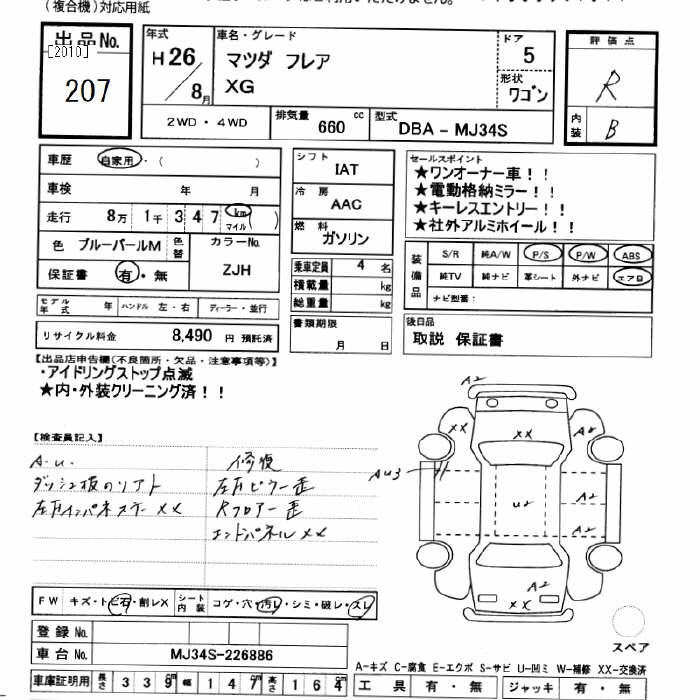 (複合機)対応用紙
出品No.
[2010]
207
年式
H26/8月
車名・グレード
マツダ フレア
XG
ドア
5
形状
ワゴン
評価点
R
内装
B
2WD・4WD
排気量
660 cc
型式
DBA-MJ34S
車歴 自家用・( )
車検 年 月
走行 8万 1千 3 4 7 km マイル ( )
色 ブルーパールM 色替
カラーNo.
ZJH
保証書 有・無
シフト
IAT
冷房
AAC
燃料
ガソリン
乗車定員 4 名
積載量 kg
総重量 kg
書類期限
月 日
セールスポイント
★ワンオーナー車!!
★電動格納ミラー!!
★キーレスエントリー!!
★社外アルミホイール!!
装備品
S/R 純A/W P/S P/W ABS
純TV 純ナビ 革シート 外ナビ エアロ
ナビ型番:
後日品
取説 保証書
モデル年式 年 ハンドル 左・右 ディーラー・並行
リサイクル料金 8,490 円 預託済
【出品店申告欄(不良箇所・欠品・注意事項等)】
・アイドリングストップ点滅
★内・外装クリーニング済!!
【検査員記入】
A.u. 修復
左右ピラー歪
Rフロアー歪
エンドパネルXX
A2
XX
XX
A2
AU3
U2
A2
A2
A2
XX
スペア
FW キズ・トビ石・割レX
シート内装 コゲ・穴・汚レ・シミ・破レ・スレ
登録No.
車台No. MJ34S-226886
車庫証明用 長さ 339cm 幅 147cm 高さ 164cm
A-キズ C-腐食 E-エクボ S-サビ U-凹ミ W-補修 XX-交換済
工具 有・無 ジャッキ 有・無